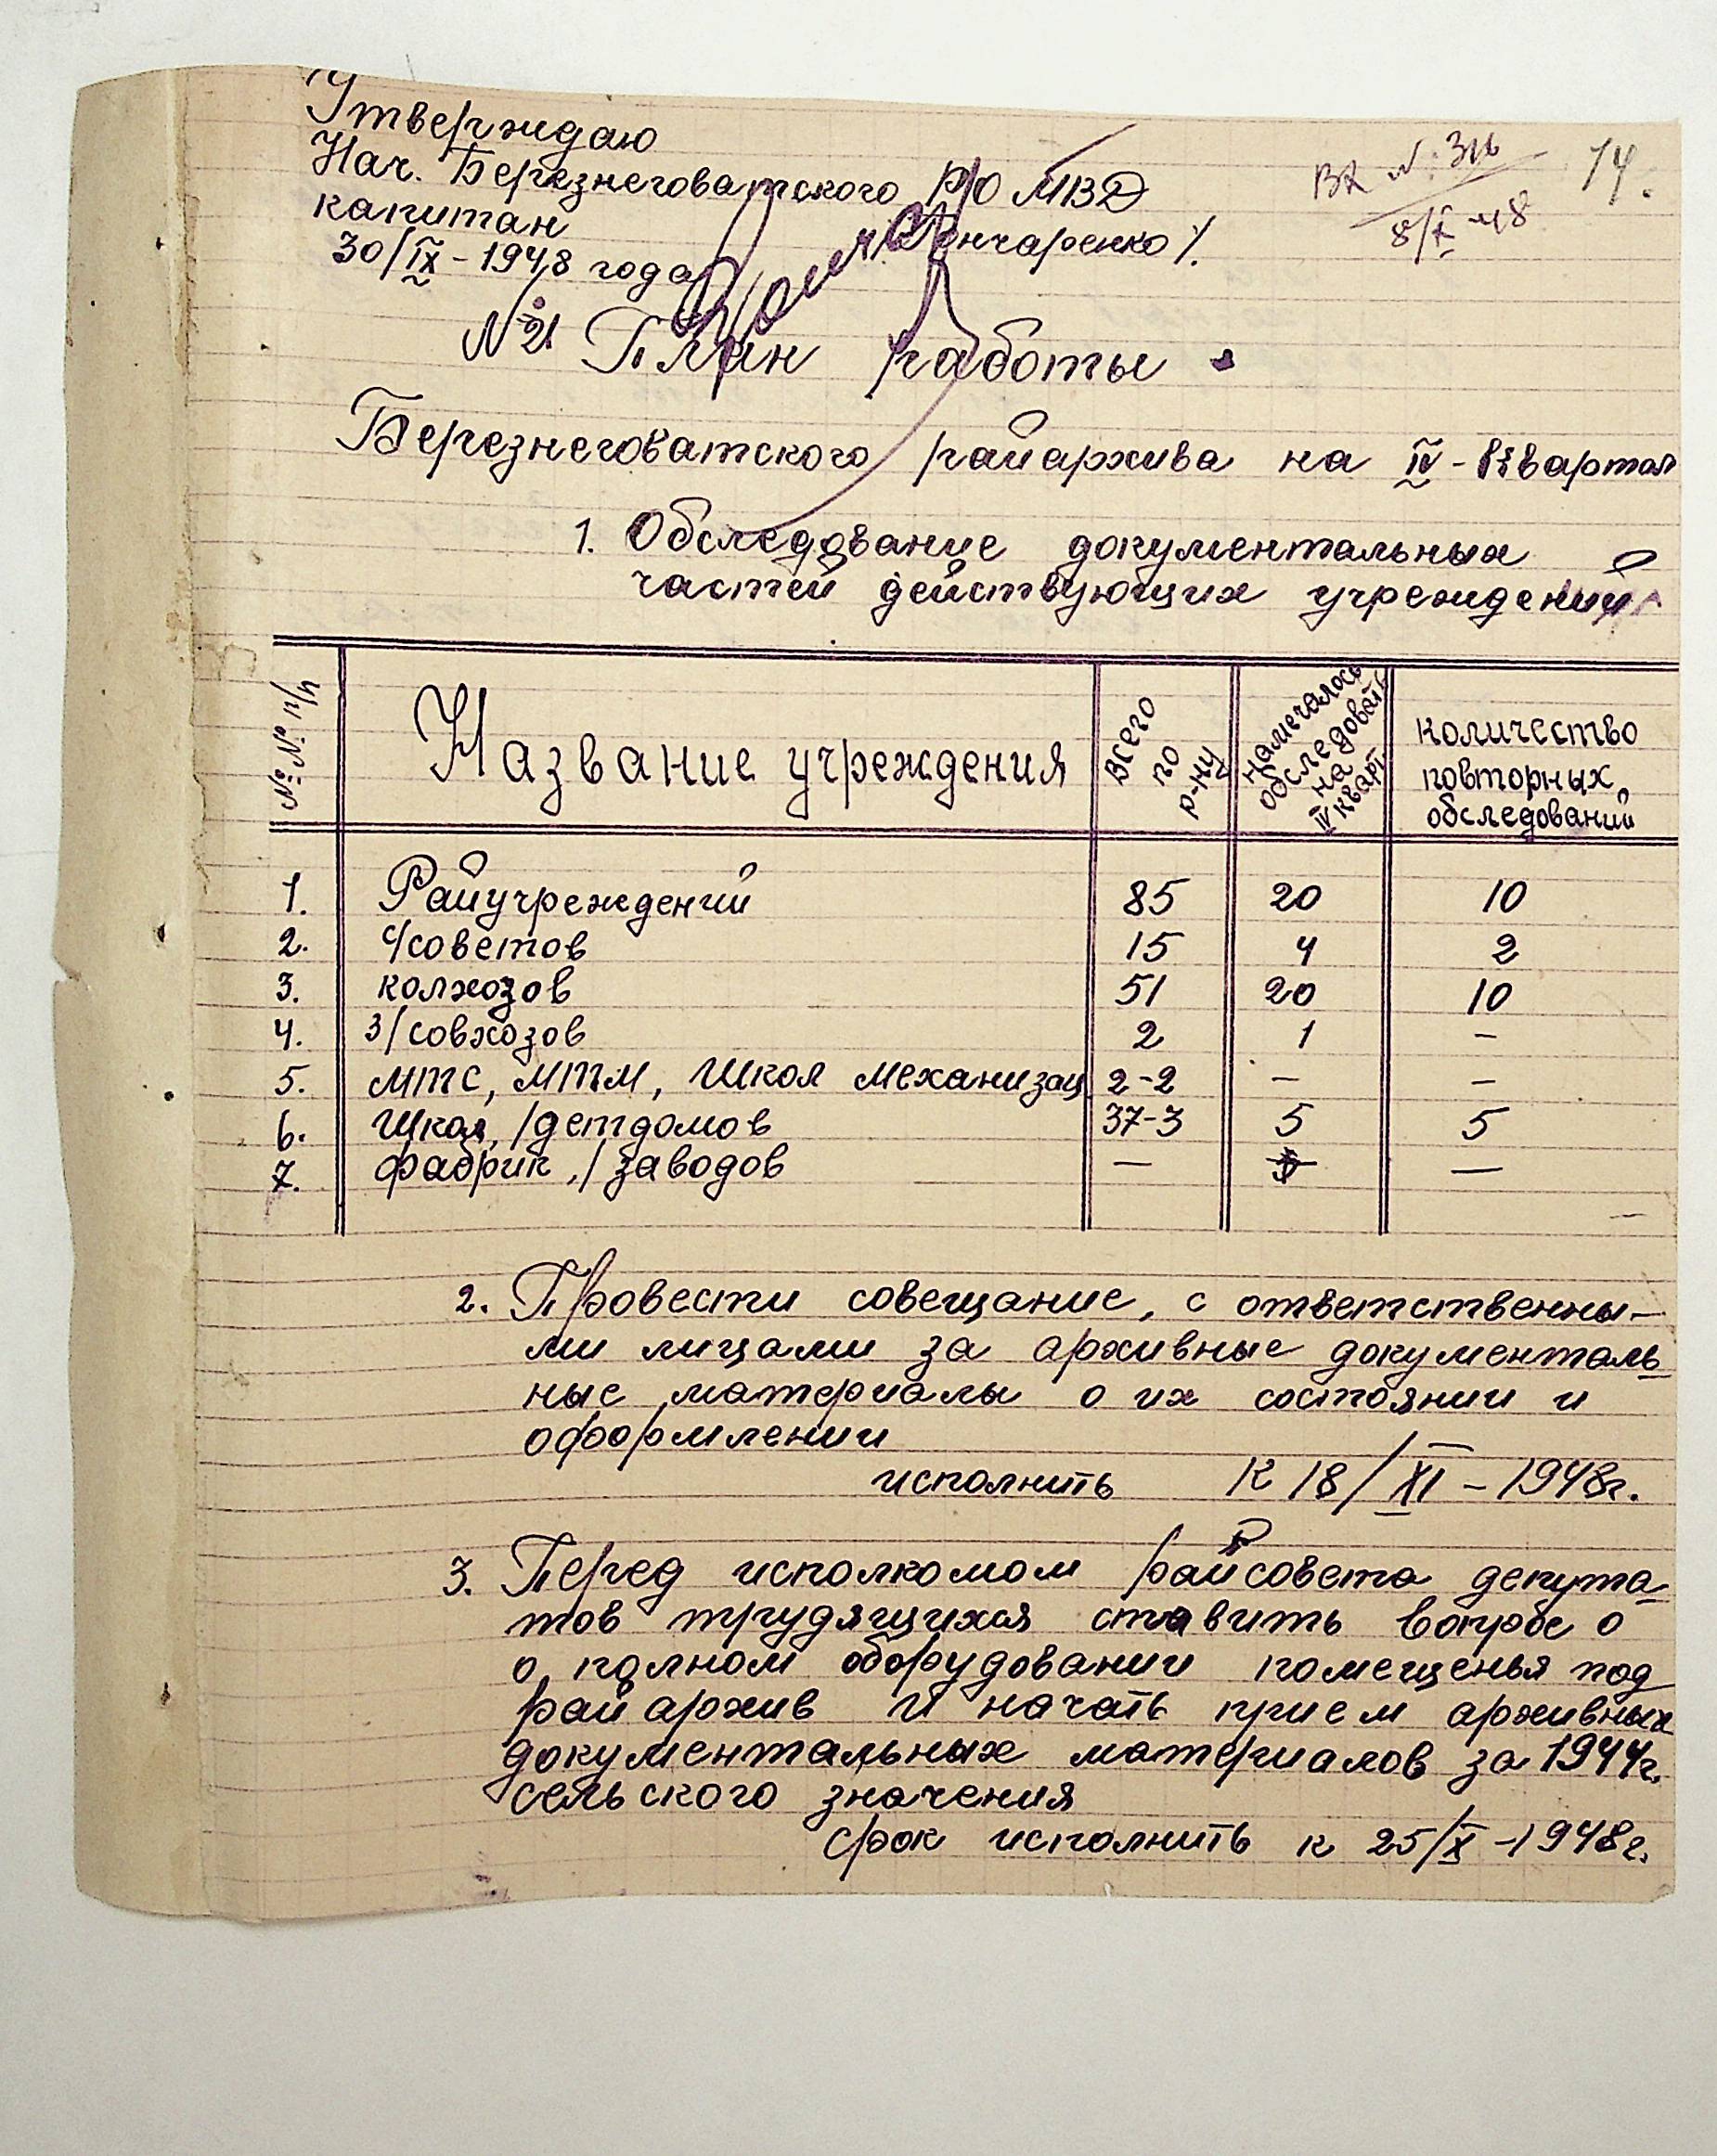 Утверждаю
Нач. Березнеговатского Р/О МВД
капитан /Гончаренко/.
30/IX-1948 года
Вх №: 316
8/X-48
14.
№21 План работы
Березнеговатского райархива на IV-й квартал
1. Обследование документальных
частей действующих учреждений
№№ п/п
Название учреждения
Всего по р-ну
намечалось обследовать на IV кварт
количество повторных обследований
1. Райучреждений 85 20 10
2. с/советов 15 4 2
3. колхозов 51 20 10
4. з/совхозов 2 1 –
5. МТС, МТМ, Школ механизац 2-2 – –
6. Школ, /детдомов 37-3 5 5
7. фабрик,/заводов — —
2. Провести совещание, с ответственны-
ми лицами за архивные документаль
ные материалы о их состоянии и
оформлении
исполнить К 18/XI-1948г.
3. Перед исполкомом райсовета депута-
тов трудящихся ставить вопрос о
о полном оборудовании помещенья под
райархив и начать прием архивных
документальных материалов за 1944г.
сельского значения
Срок исполнить к 25/X-1948г.